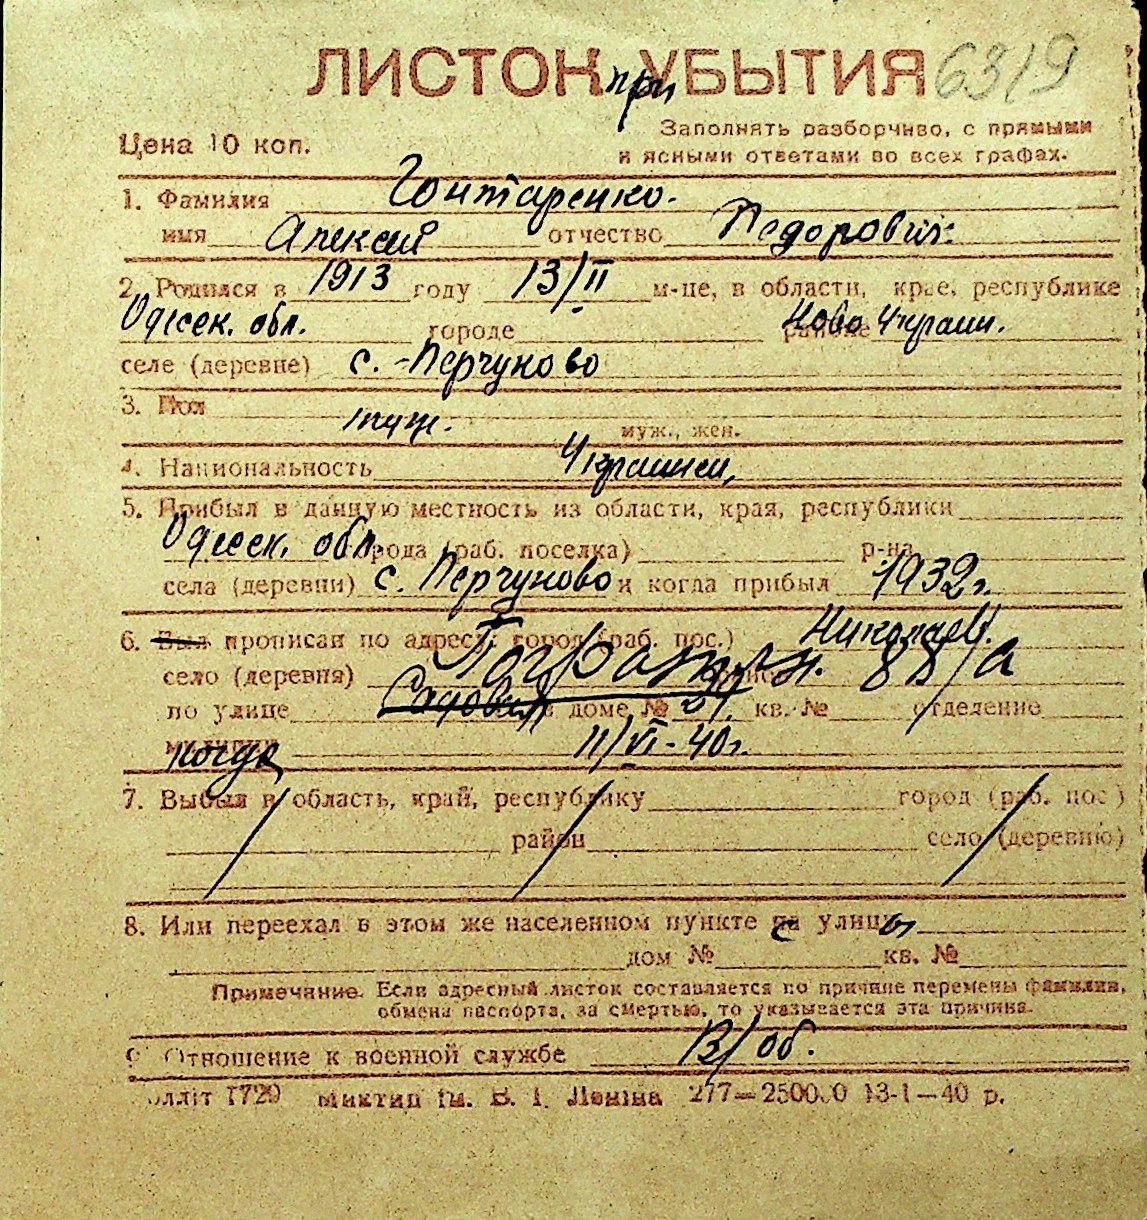 ЛИСТОК при УБЫТИЯ 6319
Цена 10 коп.
Заполнять разборчиво, с прямыми
и ясными ответами во всех графах.
1. Фамилия Гонтаренко.
имя Алексей отчество Федорович
2. Родился в 1913 году 13/II м-це, в области, крае, республике
Одесск. обл. городе районе Ново Украин.
селе (деревне) с. Перчуново
3. Пол муж.
муж., жен.
4. Национальность Украинец
5. Прибыл в данную местность из области, края, республики
Одесск. обл. города (раб. поселка) р-на
села (деревни) с. Перчуново и когда прибыл 1932 г.
6. Был прописан по адресу: город (раб. пос.) Николаев.
село (деревня) Пограничн. 88/а
по улице Садовая в доме № кв. № отделение
милиции когда 11/VI-40 г.
7. Выбыл в область, край, республику город (раб. пос.)
район село (деревню)
8. Или переехал в этом же населенном пункте с улицы
дом № кв. №
Примечание. Если адресный листок составляется по причине перемены фамилии,
обмена паспорта, за смертью, то указывается эта причина.
9. Отношение к военной службе В/об.
олліт 1729 Миктип ім. В. І. Леніна 277—250000 13-I—40 р.